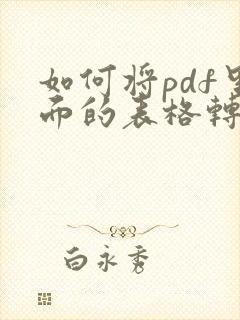 如何将pdf里
面的表格轉
白永秀